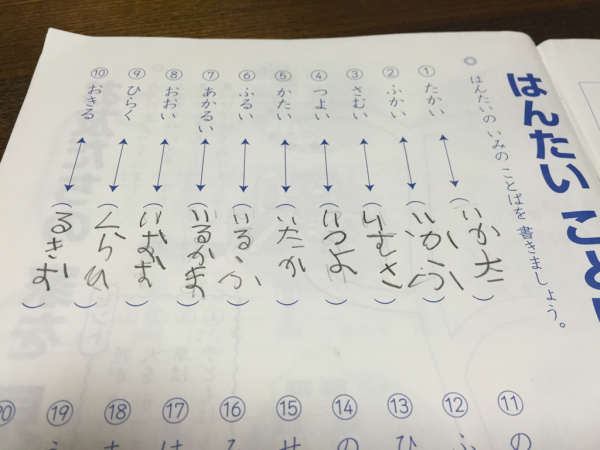 はんたい こと
はんたいの いみの ことばを 書きましょう。
① たかい ↔ (いかた)
② ふかい ↔ (いかふ)
③ さむい ↔ (いむさ)
④ つよい ↔ (いつよ)
⑤ かたい ↔ (いたか)
⑥ ふるい ↔ (いるふ)
⑦ あかるい ↔ (いるかあ)
⑧ おおい ↔ (いおお)
⑨ ひらく ↔ (くらひ)
⑩ おきる ↔ (るきお)
⑪ の
⑫ ふ
⑬ ひ
⑭ の
⑮ せ
⑯
⑰ は
⑱
⑲
⑳